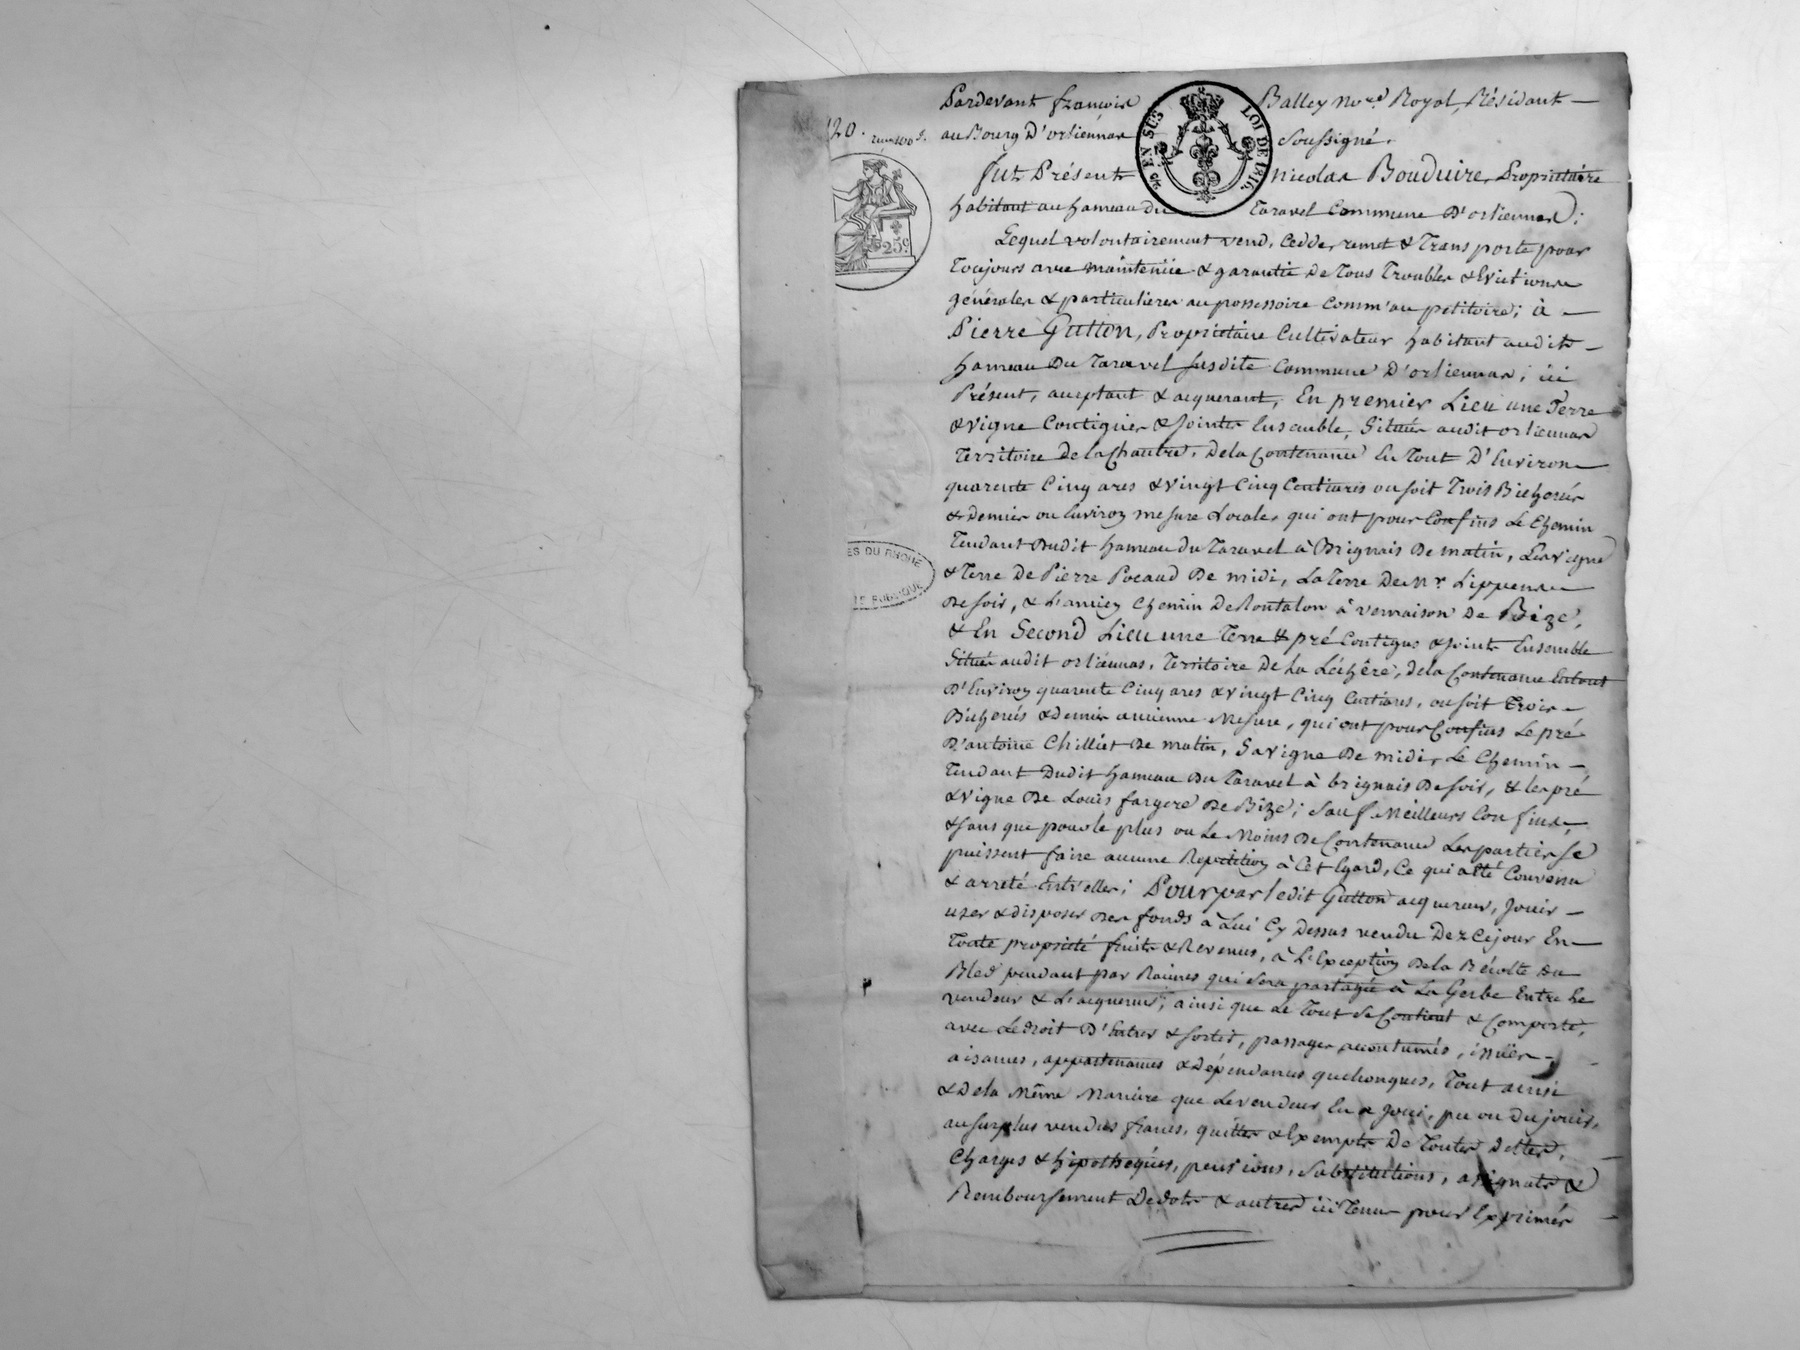 Pardevant françois Balley no.re Royal, Résidant
au Bourg D'orliénnas soussigné.
fut Présent nicolas Bouduire, Propriétaire
habitant au hameau du Taravel Commune D'orliennas;
Lequel volontairement vend, Cedde, remet & Transporte pour
Toujours avec maintenüe & garantie de Tous Troubles & Evictions
générales & particulieres au possessoire comm'au petitoire; à
Pierre Gutton, Propriétaire Cultivateur habitant audit
hameau Du Taravel susdite Commune D'orliennas; ici
Présent, acceptant & acquerant, En premier Lieu une Terre
& vigne Contigues & Jointes Ensemble, Situées audit orliennas
Territoire de la Chautre, De la Contenance En Tout D'Environ
quarente Cinq ares & vingt Cinq Centiares ou soit Trois Bicherées
& Demies ou Environ mesure Locale, qui ont pour Confins Le Chemin
Tendant Dudit hameau du Taravel à Brignais De matin, Les vigne
& Terre De Pierre Pocaud De midi, La Terre De Mr Lippens
De soir, & L'ancien Chemin De Rontalon à vernaison De Bize,
& En Second Lieu une Terre & pré Contigus & Joints Ensemble
Situés audit orliénnas, Territoire De La Léchére, De la Contenance En tout
D'Environ quarente Cinq ares & vingt Cinq Centiares, ou soit Trois
Bicherées & Demies ancienne Mesure, qui ont pour Confins Le pré
D'antoine Chilliet De matin, Sa vigne De midi, Le Chemin
Tendant Dudit hameau Du Taravel à brignais De soir, & les pré
& vigne De Louis fargere De Bize; Sauf Meilleurs Confins,
& sans que pour le plus ou Le Moins De Contenance Les parties se
puissent faire aucune Repetition à Cet Egard, Ce qui a été Convenu
& arreté Entr'elles; Pour par ledit Gutton acquereur, Jouir
user & disposer Des fonds à Lui Cy Dessus vendu Dez Cejour En
Toute propriété fruits & Revenus, à L'Exception De la Récolte En
Bled pendant par Racines qui sera partagée à La Gerbe Entre Le
vendeur & L'acquereur; ainsi que Le Tout se Contient & Comporte,
avec Le droit D'Entrer & sortir, passages accoutumés, issües,
aisances, appartenances & dépendances quelconques, Tout ainsi
& De la Même Maniere que Le vendeur En a Joui, pu ou Du jouir,
au surplus vendus francs, quittes & Exempts De Toutes Dettes,
Charges & hipothéques, pensions, Substitutions, assignats &
Remboursement De dots & autres ici Tenus pour Exprimés
120.
EN SUS
LOI DE 1816.
25c
ES DU RHONE